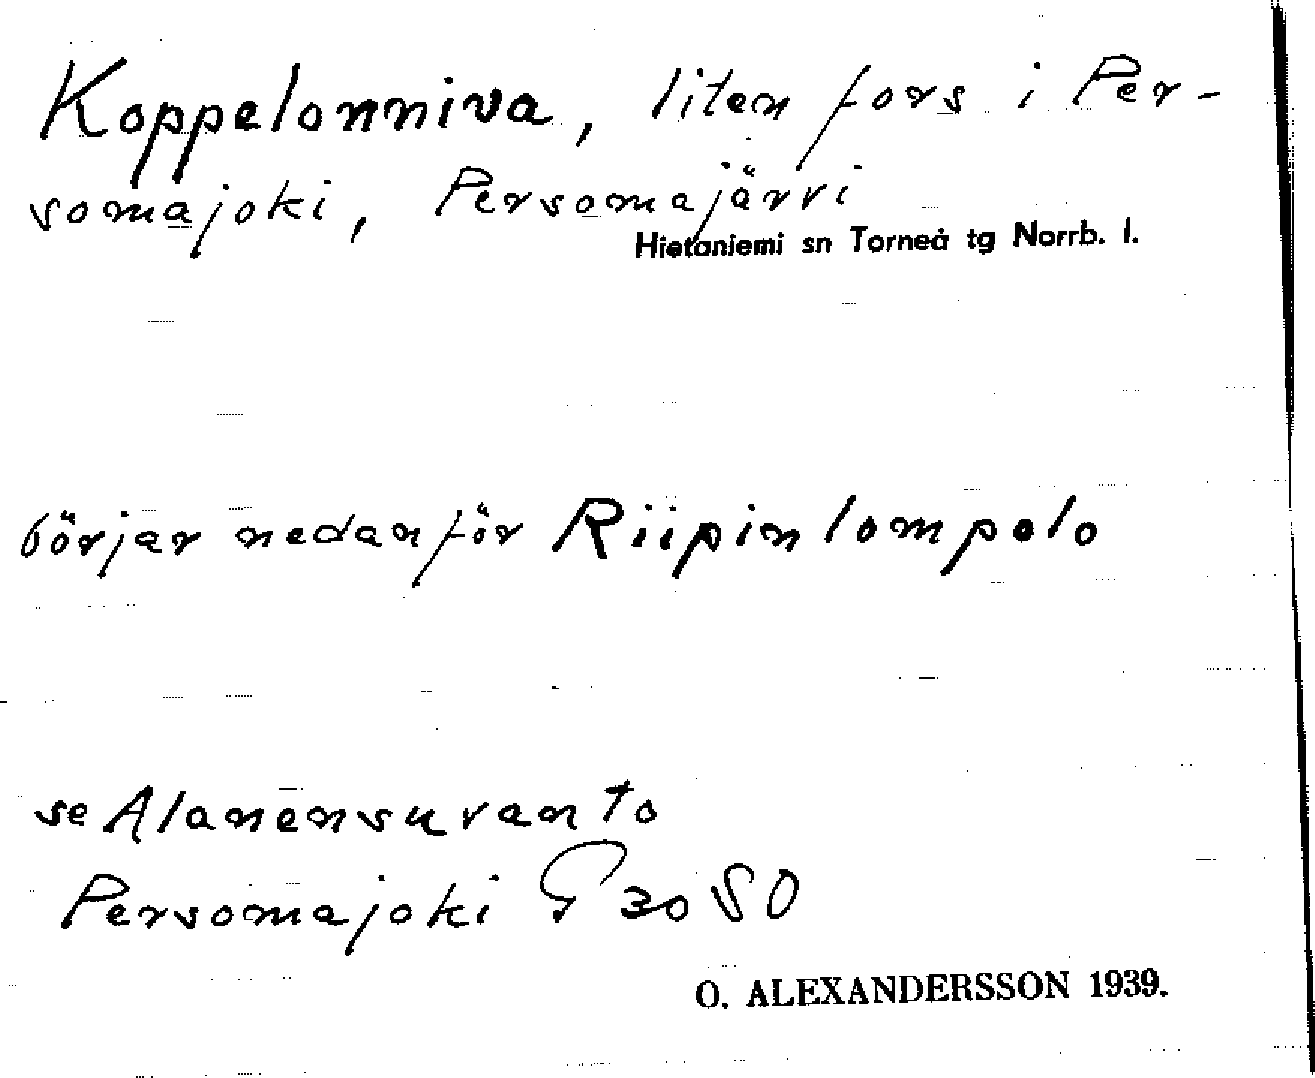 Koppelonniva, liten fors i Per-
somajoki, Persomajärvi
Hietaniemi sn Torneå tg Norrb. l.
börjar nedanför Riipinlompolo
se Alanensuvanto
Persomajoki G 30 SO
O. ALEXANDERSSON 1939.